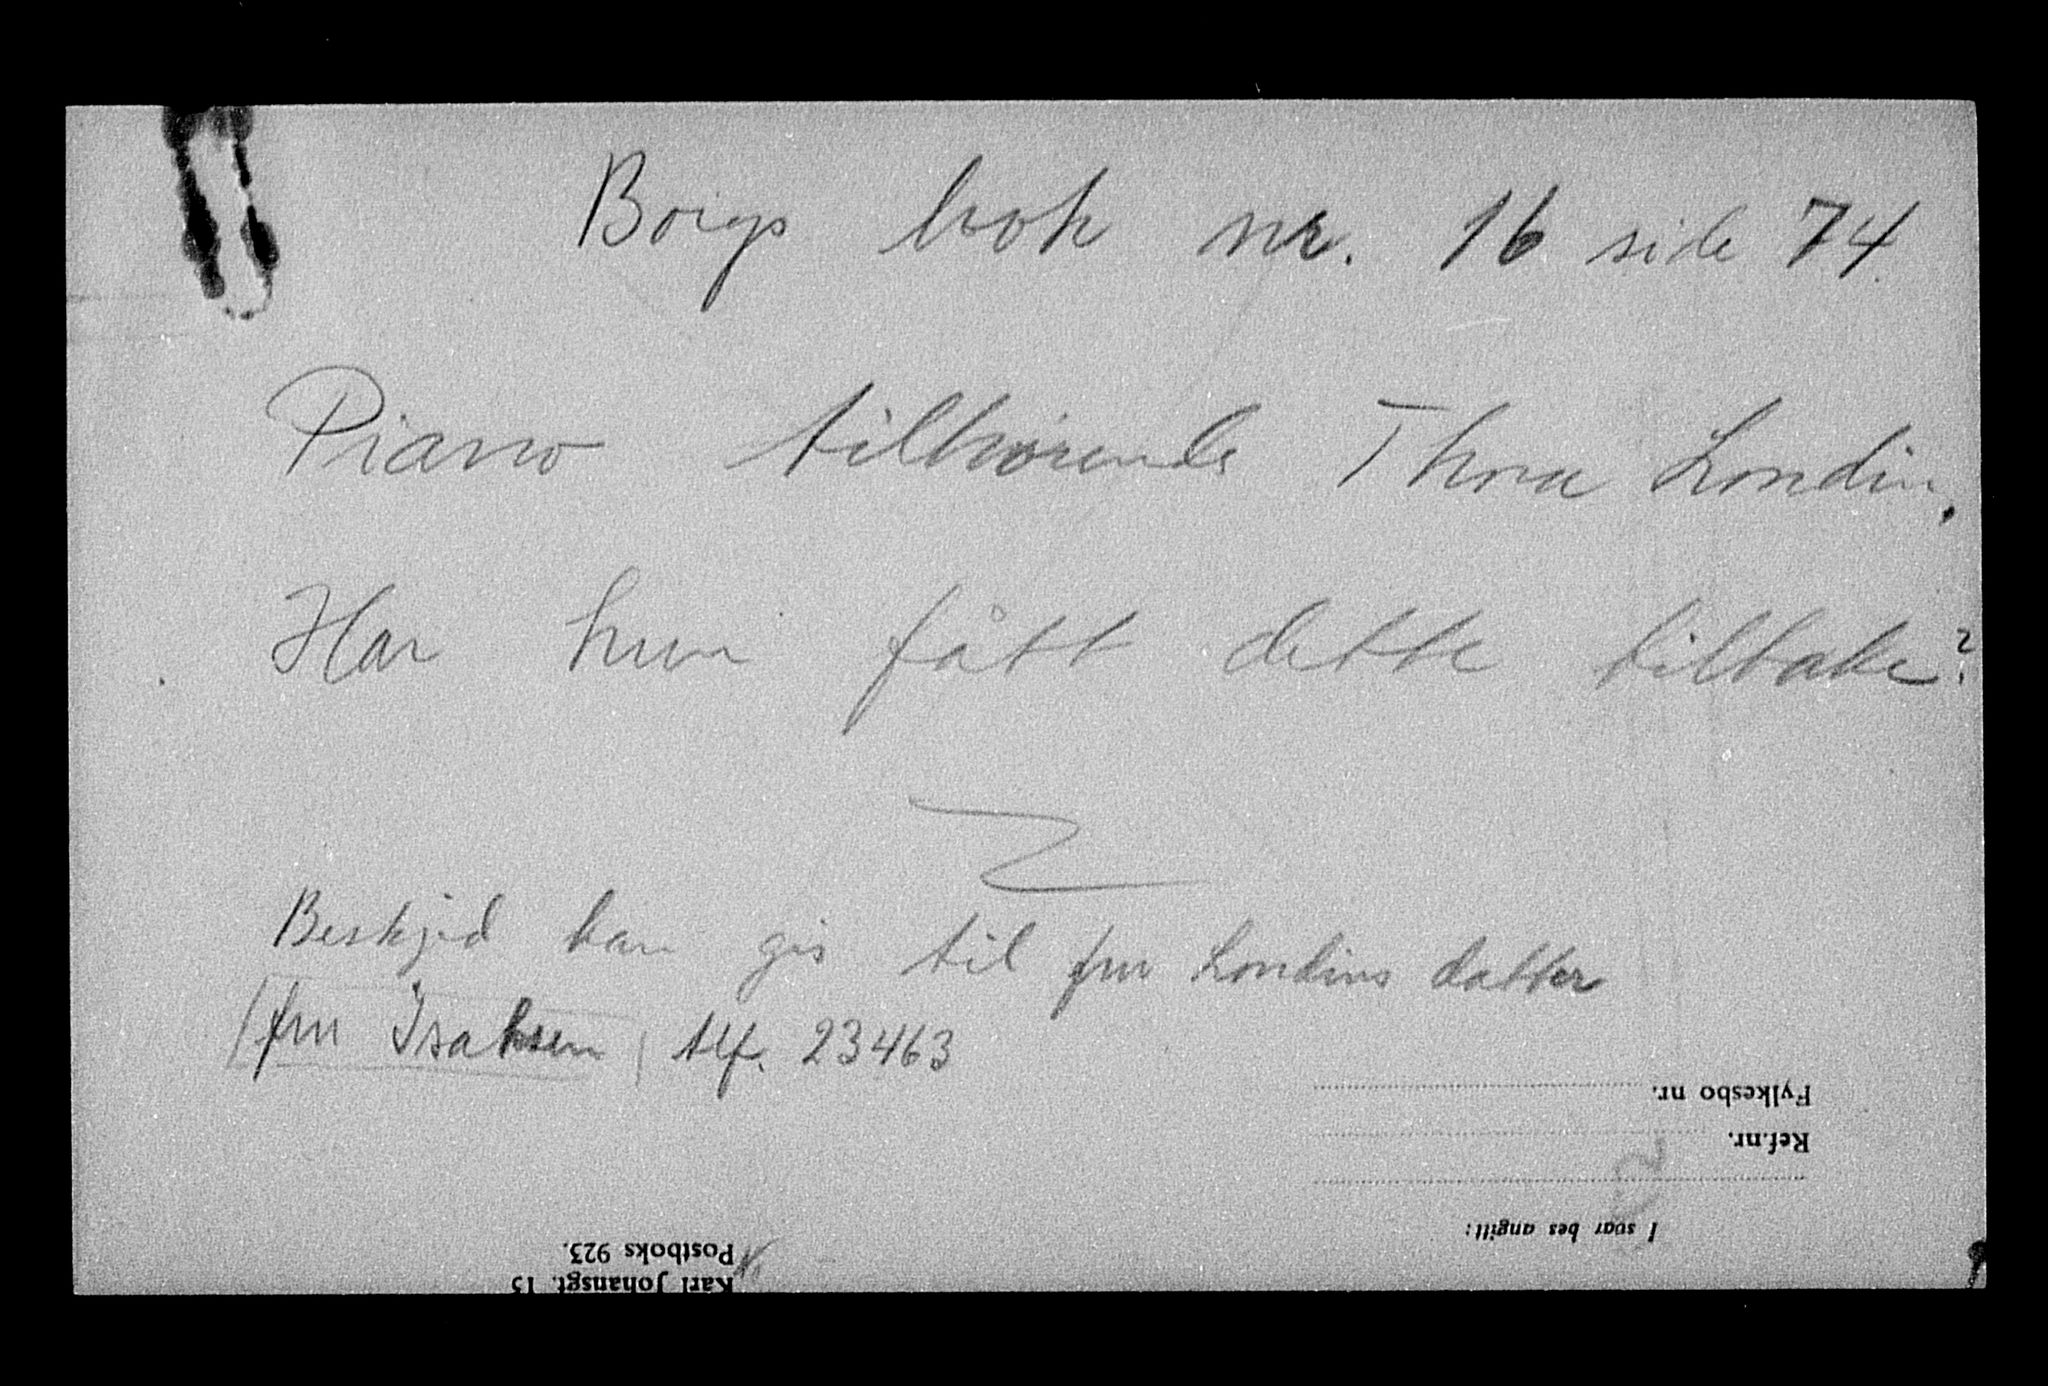 Borgs bok nr. 16 side 74.
Piano tilhørende Thora Londin.
Har hun fått dette tilbake?
Beskjed kan gis til fru Londins datter
(fru Isaksen) tlf. 23463
Fylkesbo nr.
Ref.nr.
I svar bes angitt:
Postboks 923.
Karl Johansgt. 15